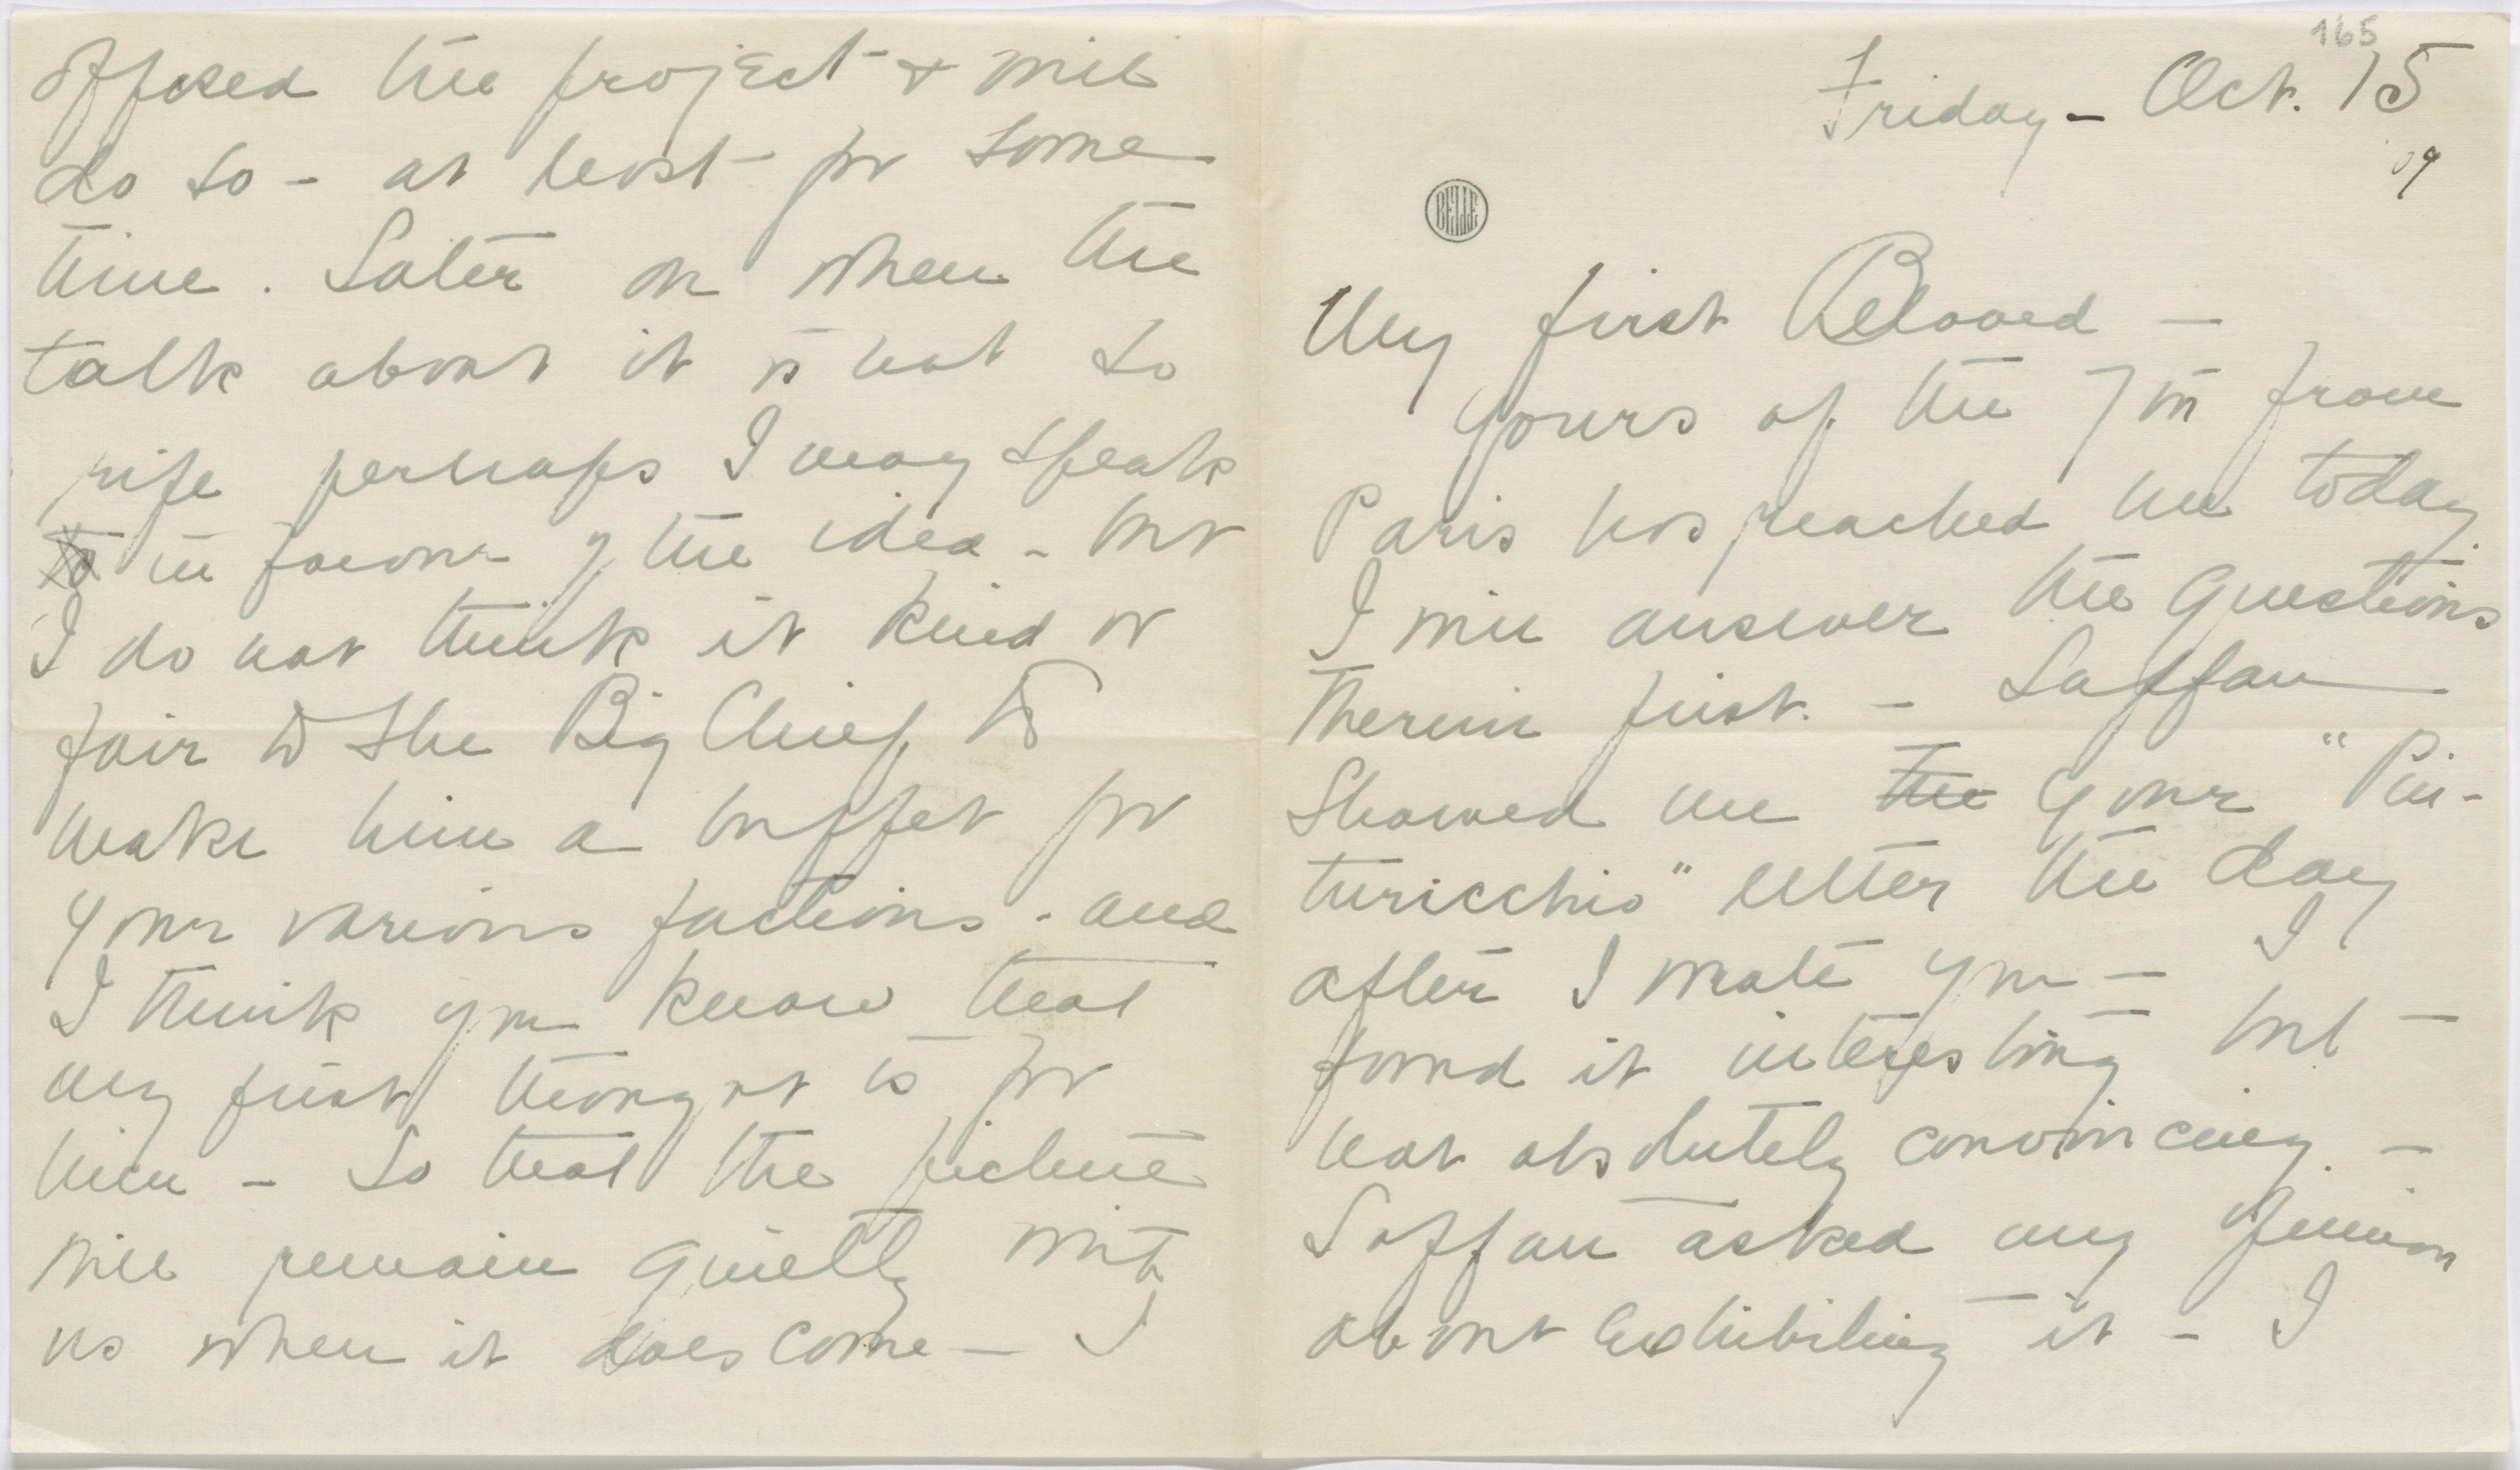 165
Friday - Oct. 15
'09
BELLE
My first Beloved —
Yours of the 7th from
Paris has reached me today.
I will answer the questions
therein first. - Laffan
showed me the your "Pin-
turicchio" letter the day
after I wrote you — I
found it interesting but —
not absolutely convincing. —
Laffan asked my opinion
about exhibiting it - I
opposed the project & will
do so - at least for some
time. Later on when the
talk about it is not so
rife perhaps I may speak
to in favour of the idea - but
I do not think it kind or
fair to the Big Chief to
make him a buffet for
your various factions - and
I think you know that
my first thought is for
him - So that the picture
will remain quietly with
us when it does come — I